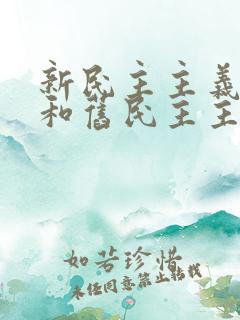 新民主主義
和舊民主主
如若珍惜
未经同意禁止转载